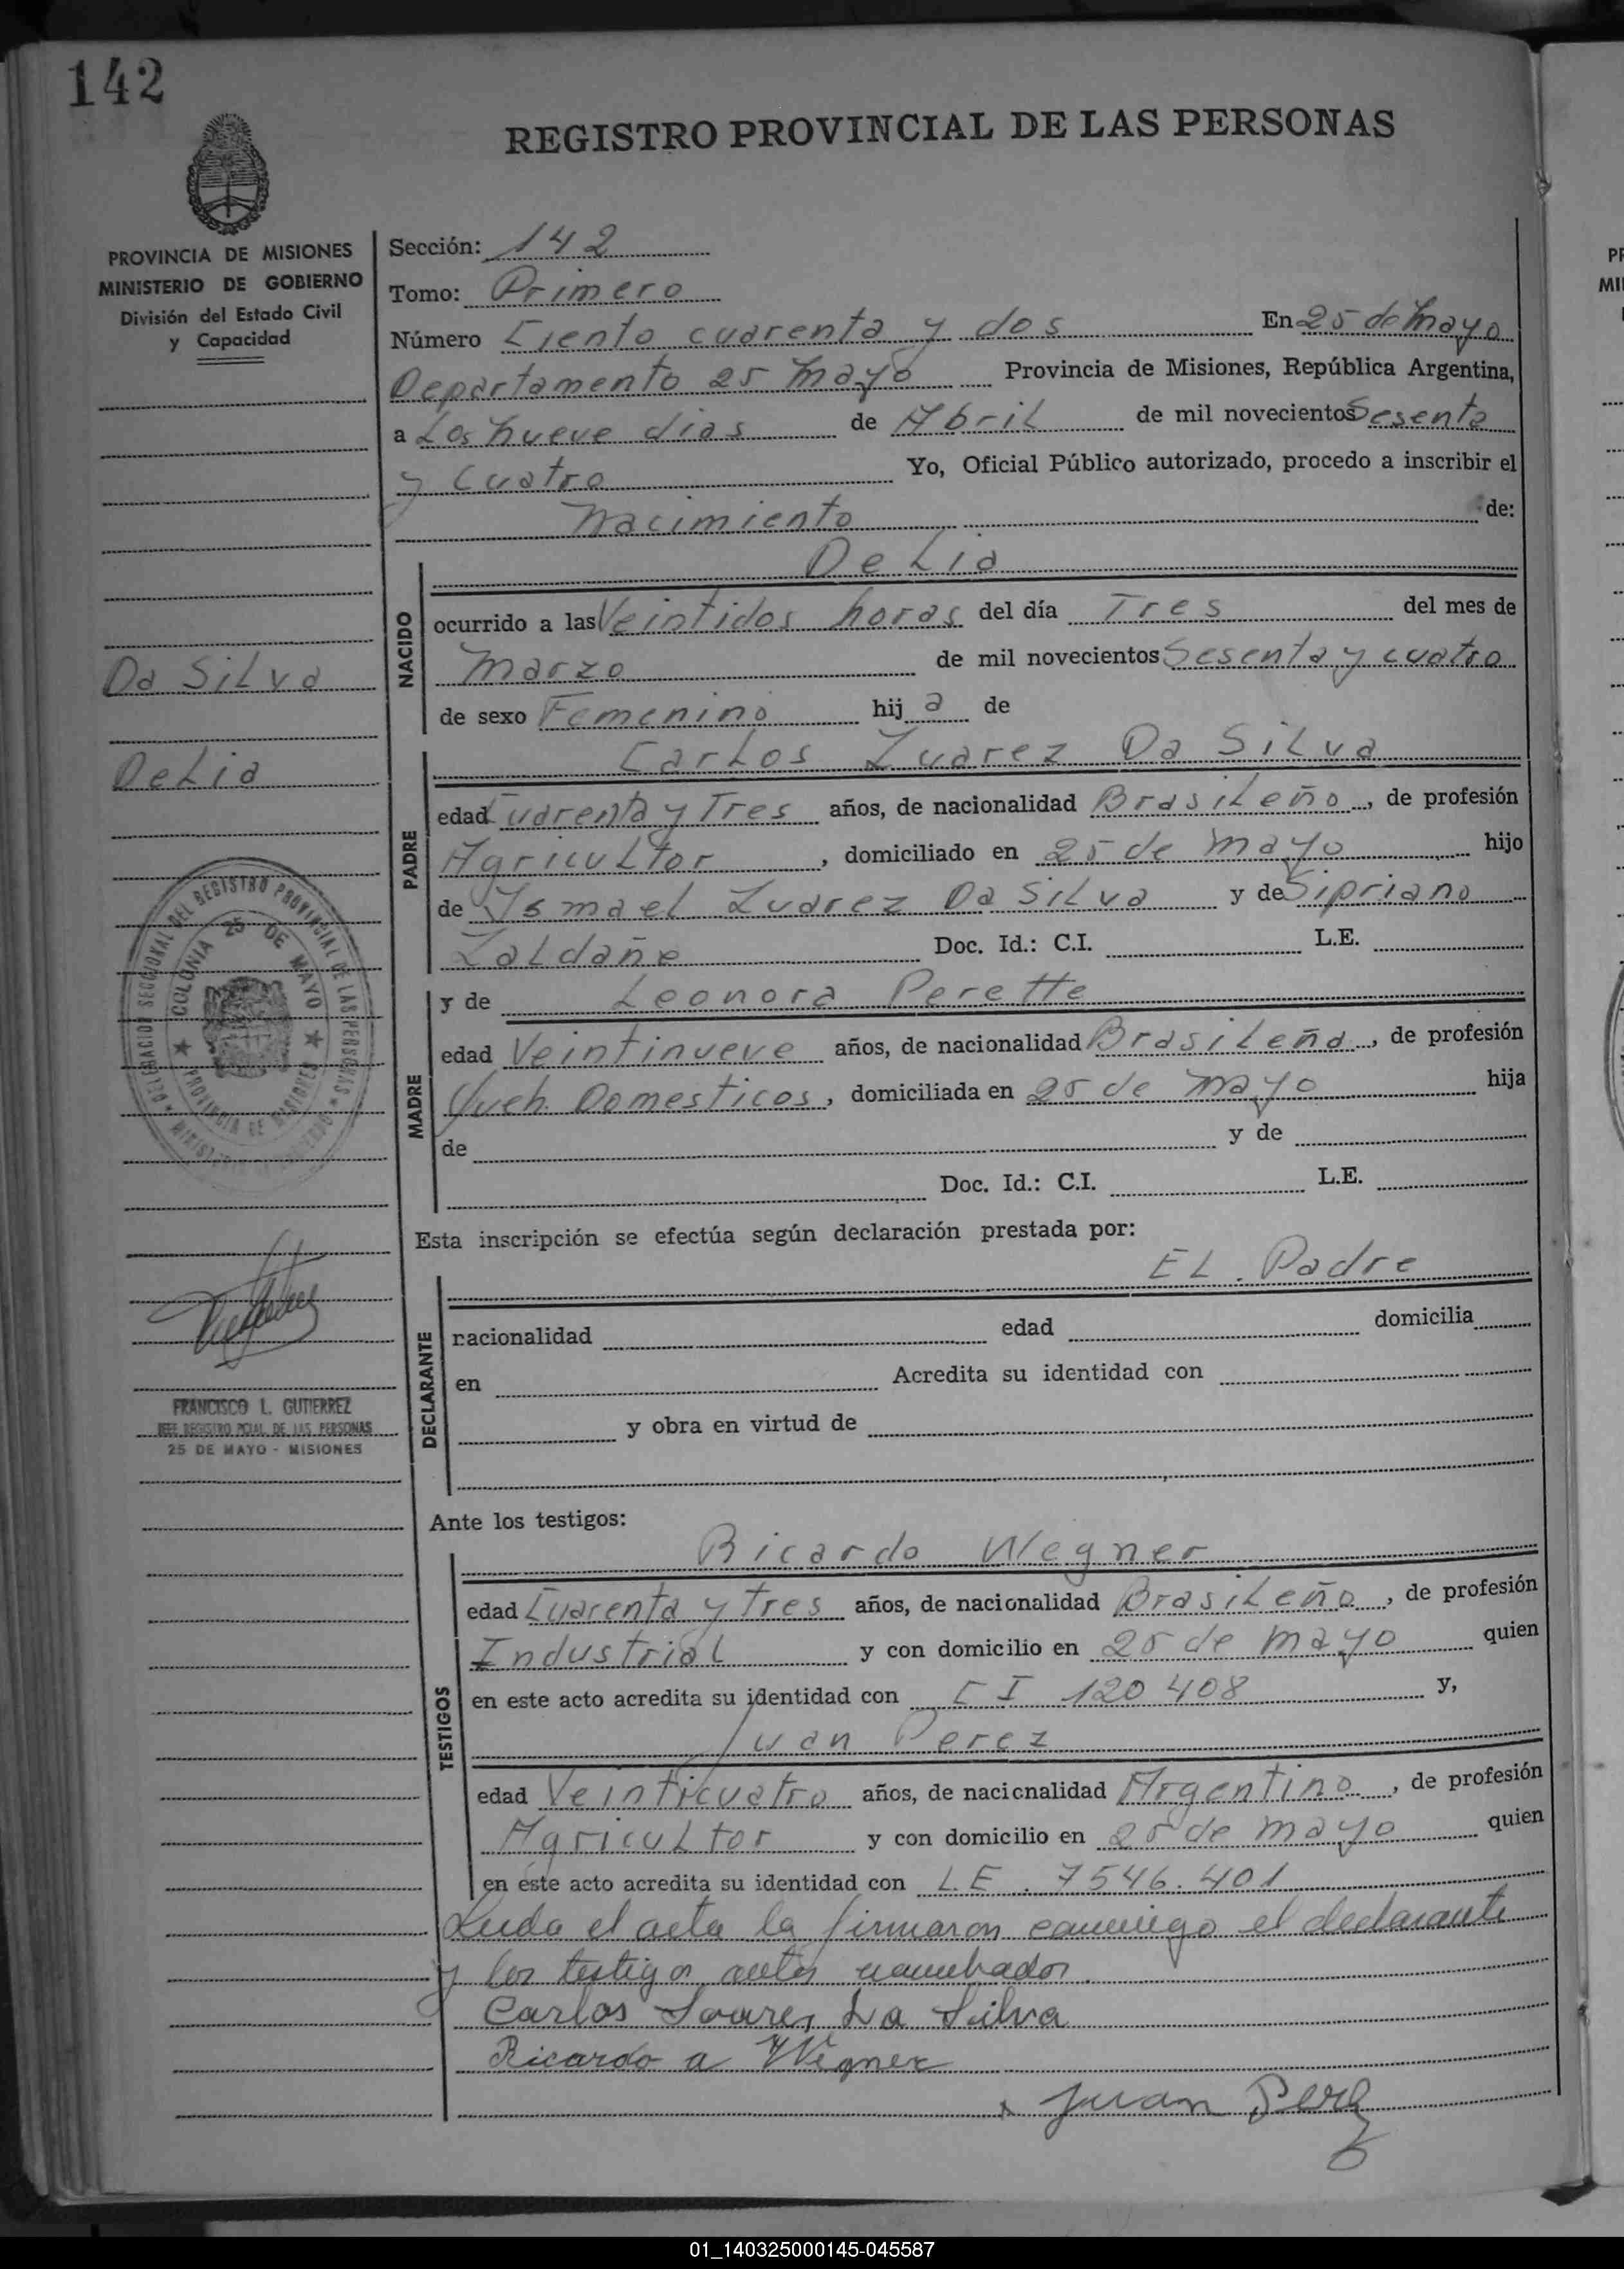 142
REGISTRO PROVINCIAL DE LAS PERSONAS
PROVINCIA DE MISIONES
MINISTERIO DE GOBIERNO
División del Estado Civil
y Capacidad
Da Silva
Delia
COLONIA 25 DE MAYO
PROVINCIA DE MISIONES
FRANCISCO L. GUTIERREZ
JEFE REGISTRO PCIAL. DE LAS PERSONAS
25 DE MAYO - MISIONES
Sección: 142
Tomo: Primero
Número Ciento cuarenta y dos En 25 de Mayo
Departamento 25 Mayo Provincia de Misiones, República Argentina,
a Los nueve dias de Abril de mil novecientos Sesenta
y Cuatro Yo, Oficial Público autorizado, procedo a inscribir el
Nacimiento de:
Delia
NACIDO
ocurrido a las Veintidos horas del día Tres del mes de
Marzo de mil novecientos Sesenta y cuatro
de sexo Femenino hija de
Carlos Zuarez Da Silva
PADRE
edad Cuarenta y Tres años, de nacionalidad Brasileño, de profesión
Agricultor, domiciliado en 25 de mayo hijo
de Ysmael Zuarez Da Silva y de Sipriana
Zaldañe Doc. Id.: C.I. L.E.
MADRE
y de Leonora Perette
edad Veintinueve años, de nacionalidad Brasileña, de profesión
Queh. Domesticos, domiciliada en 25 de mayo hija
de y de
Doc. Id.: C.I. L.E.
Esta inscripción se efectúa según declaración prestada por:
EL. Padre
DECLARANTE
nacionalidad edad domicilia
en Acredita su identidad con
y obra en virtud de
Ante los testigos:
TESTIGOS
Ricardo Wegner
edad Cuarenta y Tres años, de nacionalidad Brasileño, de profesión
Industrial y con domicilio en 25 de mayo quien
en este acto acredita su identidad con C I 120 408 y,
Juan Perez
edad Veinticuatro años, de nacionalidad Argentino, de profesión
Agricultor y con domicilio en 25 de mayo quien
en este acto acredita su identidad con L.E. 7546.401
Leida el acta la firmaron conmigo el declarante
y los testigos antes nombrados.
Carlos Soares Da Silva
Ricardo a Wegner
Juan Perez
01_140325000145-045587